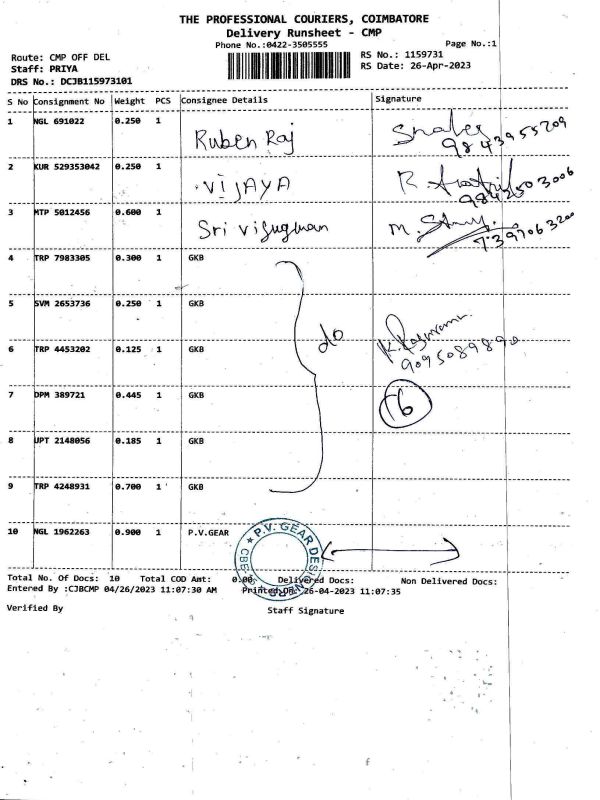 THE PROFESSIONAL COURIERS, COIMBATORE
Delivery Runsheet - CMP
Phone No.:0422-3505555 Page No.:1
Route: CMP OFF DEL RS No.: 1159731
Staff: PRIYA RS Date: 26-Apr-2023
DRS No.: DCJB115973101
S No Consignment No Weight PCS Consignee Details Signature
1 NGL 691022 0.250 1 Ruben Raj
9843955209
2 KUR 529353042 0.250 1 VIJAYA R.
9842503006
3 MTP 5012456 0.600 1 Sri Visuguman M.
7397063200
4 TRP 7983305 0.300 1 GKB
5 SVM 2653736 0.250 1 GKB do
6 TRP 4453202 0.125 1 GKB
9095089890
7 DPM 389721 0.445 1 GKB 16
8 UPT 2148056 0.185 1 GKB
9 TRP 4248931 0.700 1 GKB
10 NGL 1962263 0.900 1 P.V.GEAR
P.V. GEAR DESIGNERS
Total No. Of Docs: 10 Total COD Amt: 0.00 Delivered Docs: Non Delivered Docs:
Entered By :CJBCMP 04/26/2023 11:07:30 AM Printed On: 26-04-2023 11:07:35
Verified By Staff Signature